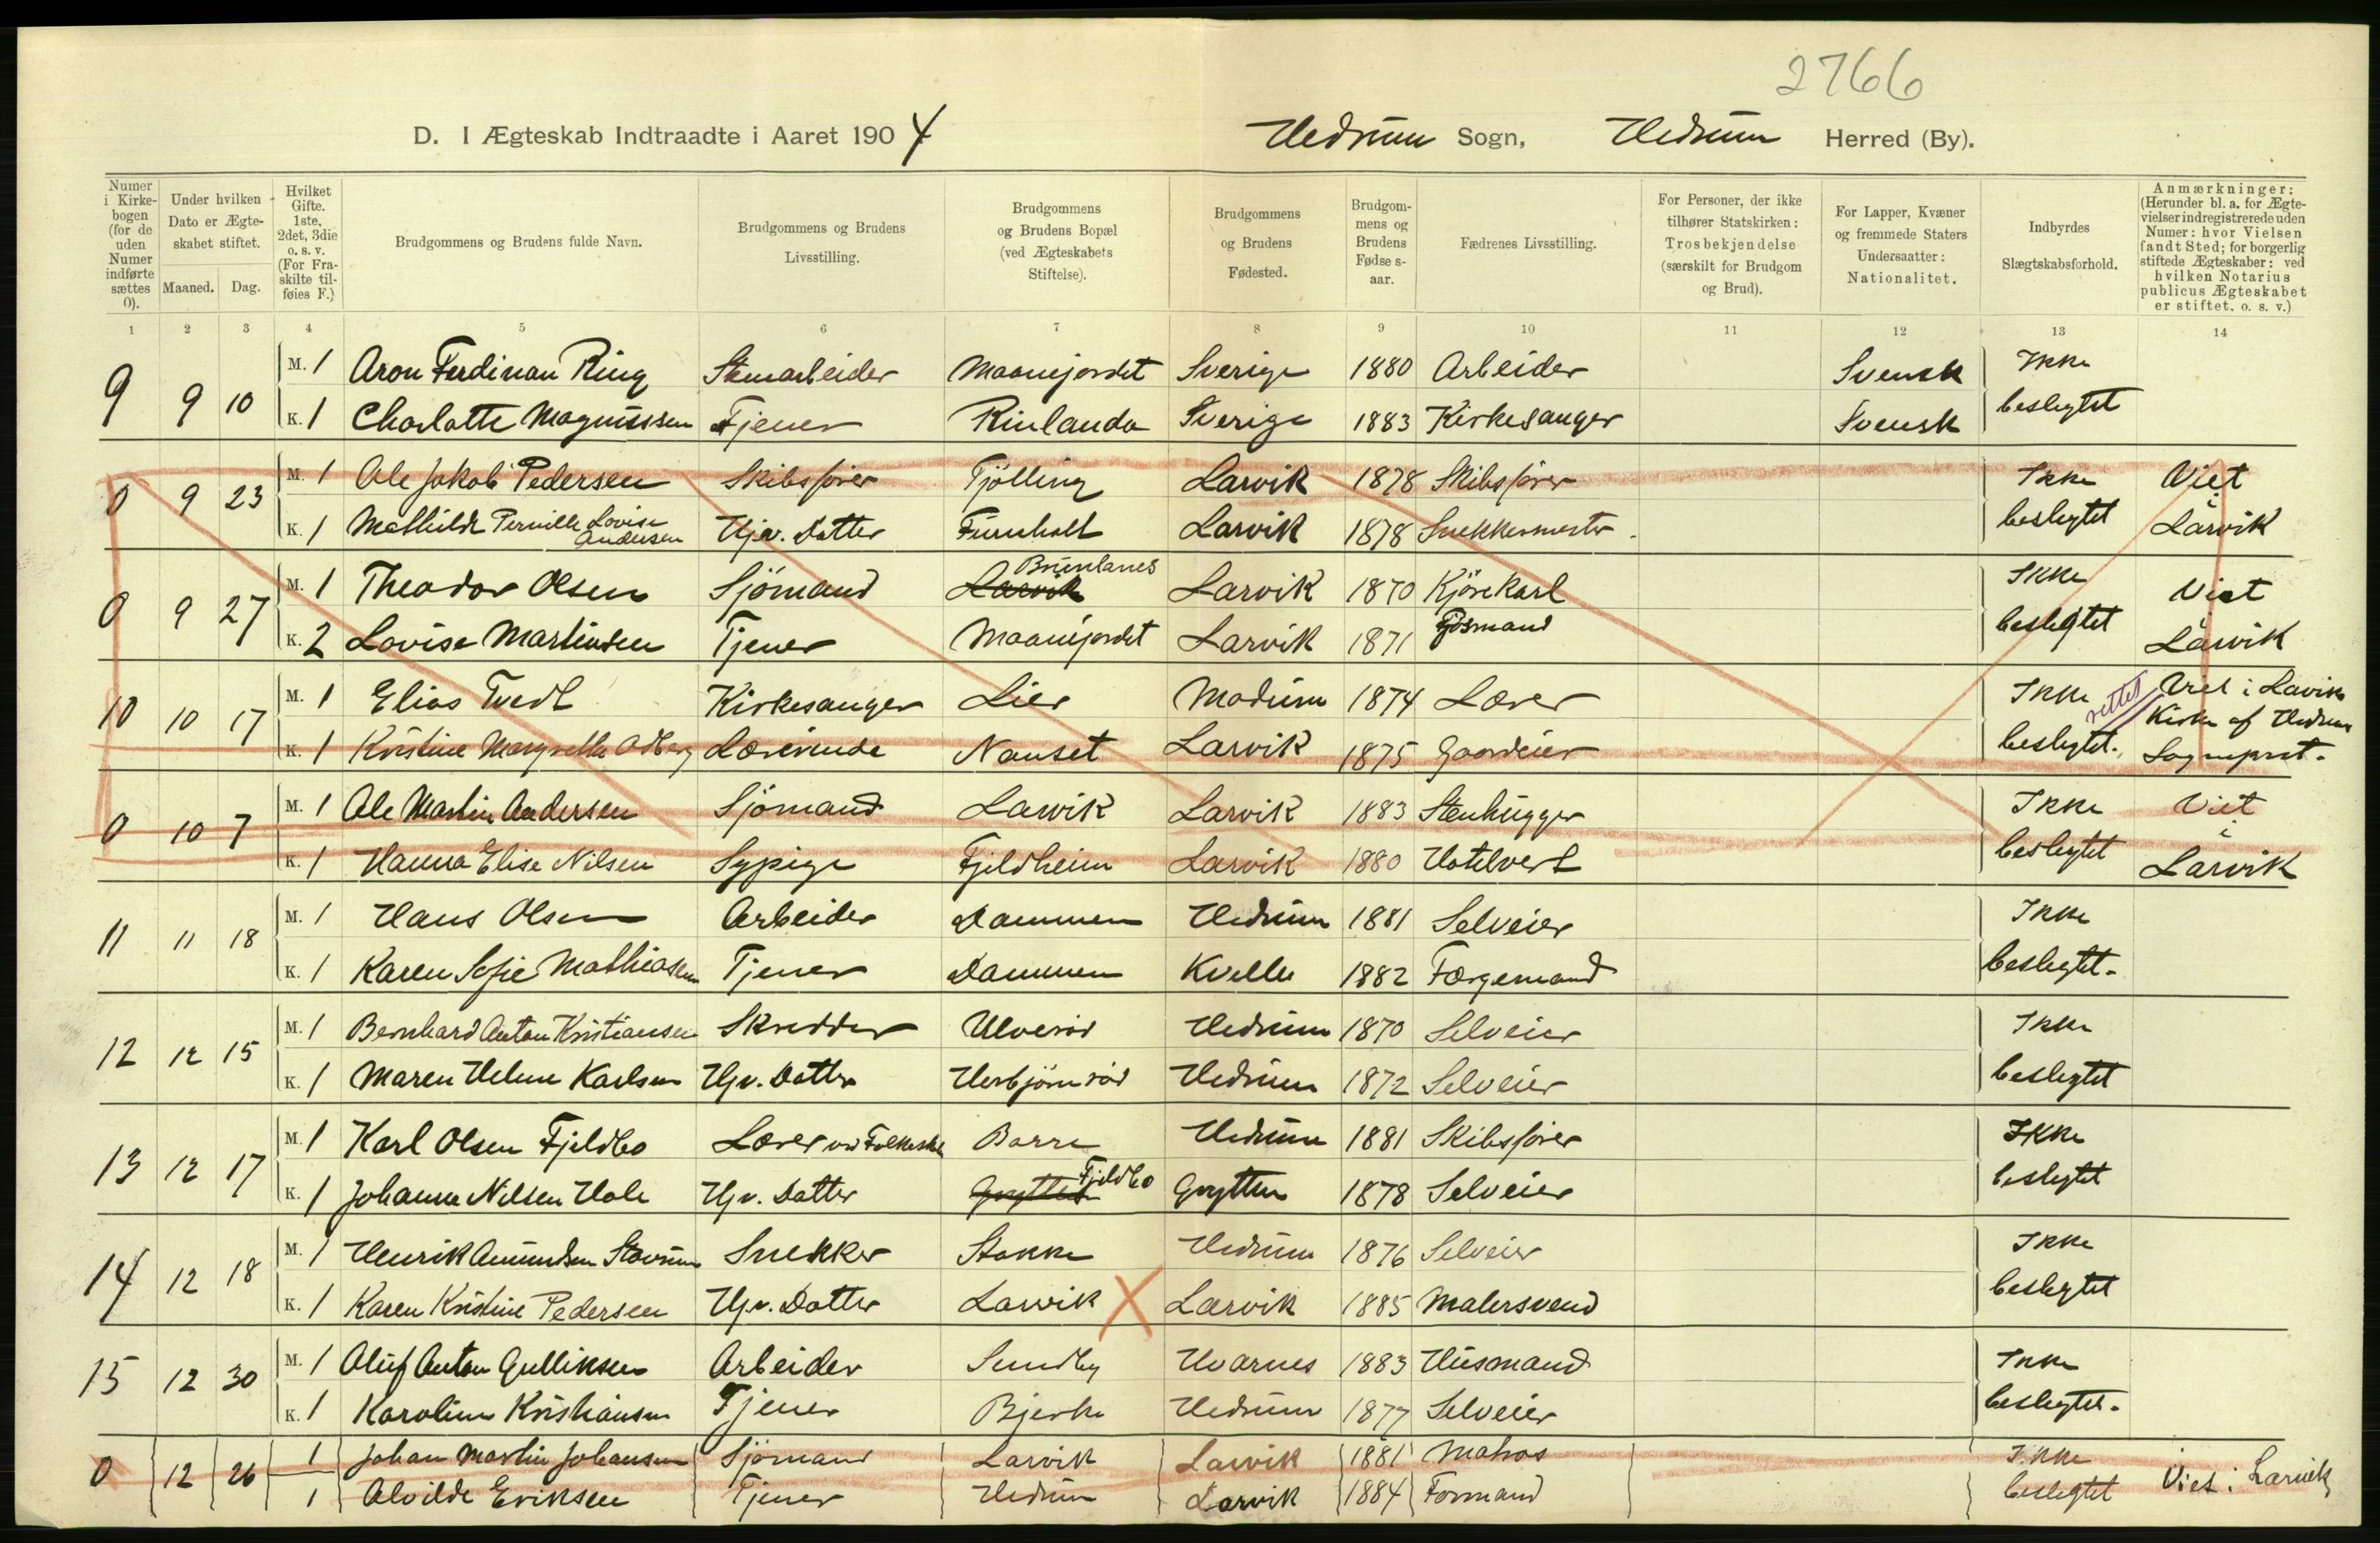 2766
D. I Ægteskab Indtraadte i Aaret 1904 Hedrum Sogn, Hedrum Herred (By).
Numer i Kirkebogen (for de uden Numer indførte sættes 0).
Under hvilken Dato er Ægteskabet stiftet.
Maaned. Dag.
Hvilket Gifte. 1ste, 2det, 3die o. s. v. (For Fraskilte tilføies F.)
Brudgommens og Brudens fulde Navn.
Brudgommens og Brudens Livsstilling.
Brudgommens og Brudens Bopæl (ved Ægteskabets Stiftelse).
Brudgommens og Brudens Fødested.
Brudgommens og Brudens Fødselsaar.
Fædrenes Livsstilling.
For Personer, der ikke tilhører Statskirken: Trosbekjendelse (særskilt for Brudgom og Brud).
For Lapper, Kvæner og fremmede Staters Undersaatter: Nationalitet.
Indbyrdes Slægtskabsforhold.
Anmærkninger: (Herunder bl. a. for Ægtevielser indregistrerede uden Numer: hvor Vielsen fandt Sted; for borgerlig stiftede Ægteskaber: ved hvilken Notarius publicus Ægteskabet er stiftet. o. s. v.)
1 2 3 4 5 6 7 8 9 10 11 12 13 14
9 9 10 M. 1 Aron Ferdinan Ring Stenarbeider Maanejordet Sverige 1880 Arbeider Svensk Ikke
K. 1 Charlotte Magnussen Tjener Rinlanda Sverige 1883 Kirkesanger Svensk beslegtet
0 9 23 M. 1 Ole Jakob Pedersen Skibsfører Tjölling Larvik 1878 Skibsfører Ikke Viet
K. 1 Mathilde Pernille Lovise Andersen Hjv. Datter Furuholt Larvik 1878 Snekkermester beslegtet i Larvik
0 9 27 M. 1 Theodor Olsen Sjömand Larvik Brunlanes Larvik 1870 Kjörekarl Ikke Viet
K. 2 Lovise Martinsen Tjener Maanejordet Larvik 1871 Fjösmand beslegtet i Larvik
10 10 17 M. 1 Elias Tvedt Kirkesanger Lier Modum 1874 Lærer Ikke rettet Viet i Larvik
K. 1 Kristine Margrethe Odberg Lærerinde Nanset Larvik 1875 Gaardeier beslegtet. Kirke af Hedrum Sogneprest.
0 10 7 M. 1 Ole Martin Andersen Sjömand Larvik Larvik 1883 Stenhugger Ikke Viet
K. 1 Hanna Elise Nilsen Sypige Fjeldheim Larvik 1880 Hotelvert beslegtet i Larvik
11 11 18 M. 1 Hans Olsen Arbeider Dammen Hedrum 1881 Selveier Ikke
K. 1 Karen Sofie Mathiasen Tjener Dammen Kvelle 1882 Færgemand beslegtet.
12 12 15 M. 1 Bernhard Anton Kristiansen Skredder Ulveröd Hedrum 1870 Selveier Ikke
K. 1 Maren Helene Karlsen Hjv. Datter Herbjörnröd Hedrum 1872 Selveier beslegtet
13 12 17 M. 1 Karl Olsen Fjeldbo Lærer ved Folkeskole Borre Hedrum 1881 Skibsfører Ikke
K. 1 Johanne Nilsen Hole Hjv. Datter Grytten Fjeldbo Grytten 1878 Selveier beslegtet
14 12 18 M. 1 Henrik Amundsen Stavrum Snekker Stokke Hedrum 1876 Selveier Ikke
K. 1 Karen Kristine Pedersen Hjv. Datter Larvik Larvik 1885 Malersvend beslegtet
15 12 30 M. 1 Oluf Anton Gulliksen Arbeider Sundby Hvarnes 1883 Husmand Ikke
K. 1 Karoline Kristiansen Tjener Bjerke Hedrum 1877 Selveier beslegtet.
0 12 26 1 Johan Martin Johansen Sjömand Larvik Larvik 1881 Matros Ikke Viet i Larvik
1 Alvilde Eriksen Tjener Hedrum Larvik 1884 Formand beslegtet